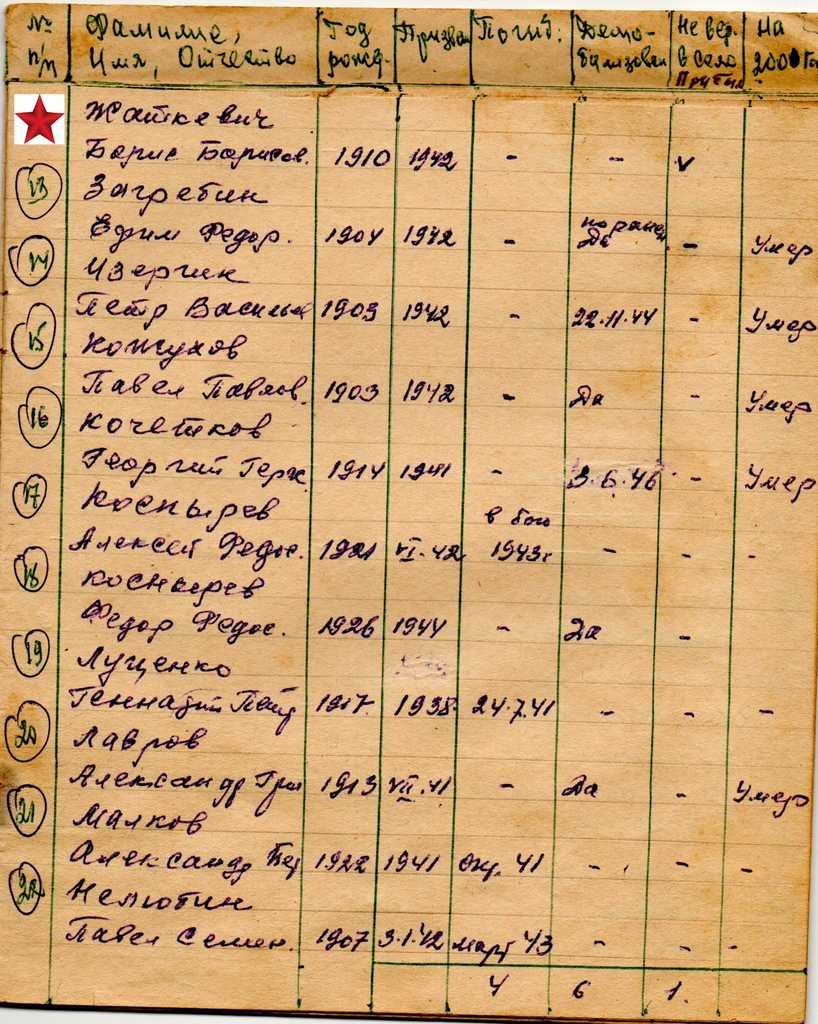 № п/п Фамилие, Имя, Отчество Год рожд. Призван Погиб. Демобилизован Не вер. в село Прибыл На 2000 г.
Жайкевич
Борис Борисов. 1910 1942 - - v
13 Загребин
Ефим Федор. 1904 1942 - по ранен. Да - Умер
14 Изергин
Петр Василье 1903 1942 - 22.11.44 - Умер
15 Кожухов
Павел Павлов. 1903 1942 - Да - Умер
16 Кочетков
Георгий Герас. 1914 1941 - 3.6.46 - Умер
17 Коспырев
Алексей Федос. 1921 VI.42 в бою 1943г - - -
18 Коспырев
Федор Федос. 1926 1944 - Да -
19 Луценко
Геннадий Петр 1917. 1938. 24.7.41 - - -
20 Лавров
Александр Гри 1913 VII.41 - Да - Умер
21 Малков
Александр 1922 1941 41 - - -
22 Нелюбин
Павел Семен. 1907 3.1.42 март 43 - - -
4 6 1.